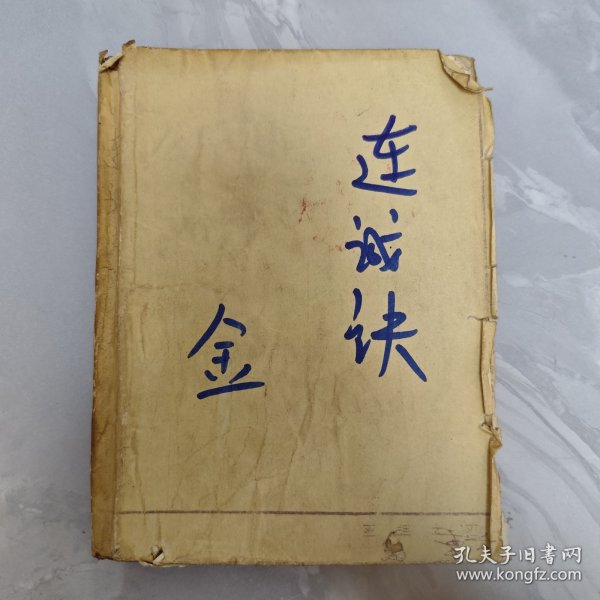 连诚诀
金
孔夫子旧书网
www.kongfz.com